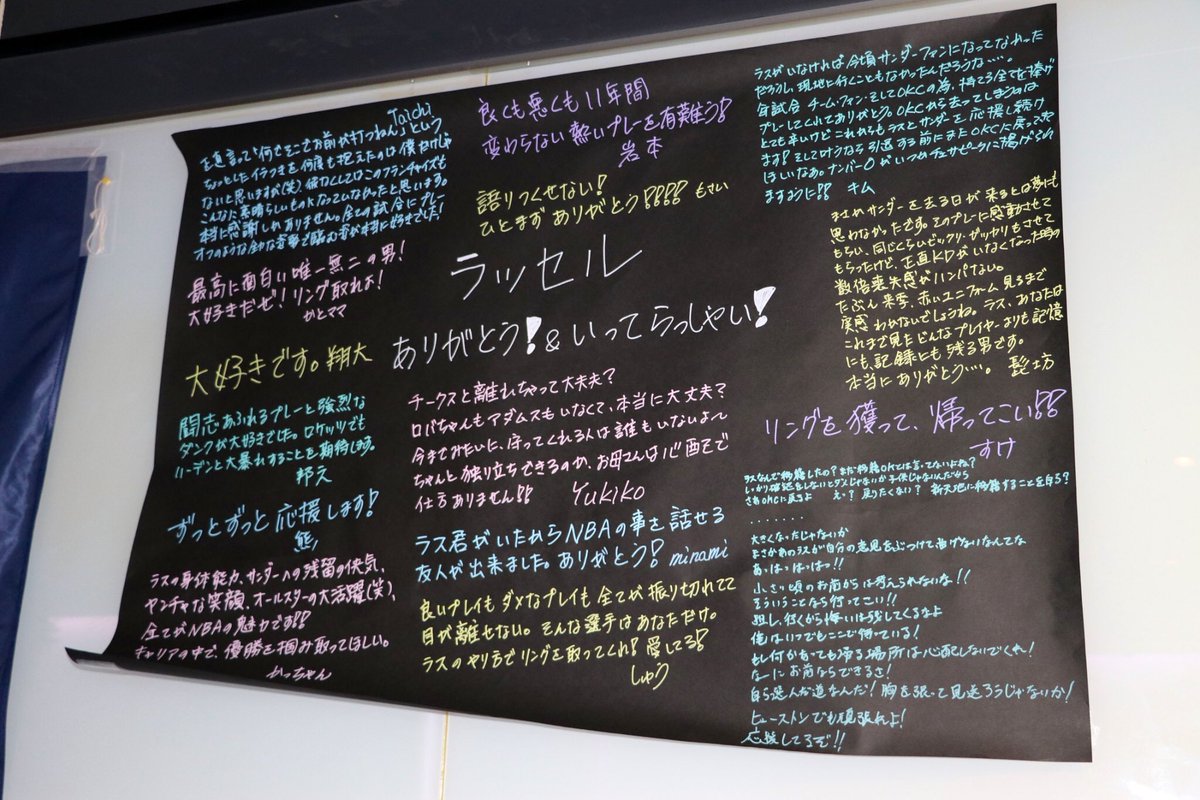 Taichi
正直言って“何でそこでお前が打つねん”という
ちょっとしたイラつきを何度も抱えたのは僕だけじゃ
ないと思いますが(笑) 彼なくしてはこのフランチャイズも
こんなに素晴らしいものになっていなかったと思います。
本当に感謝しかありません。全ての試合にプレー
オフのような全力な姿勢で臨む姿が本当に好きでした!
最高に面白い唯一無二の男!
大好きだぜ!リング取れよ!
かとママ
大好きです。翔大
闘志あふれるプレーと強烈な
ダンクが大好きでした。ロケッツでも
ハーデンと大暴れすることを期待します。
邦之
ずっとずっと応援します!
熊
ラスの身体能力、サンダーへの残留の侠気、
ヤンチャな笑顔、オールスターの大活躍(笑)、
全てがNBAの魅力です!!
キャリアの中で、優勝を掴み取ってほしい。
かっちゃん
良くも悪くも11年間
変わらない熱いプレーを有難う!
岩本
語りつくせない!
ひとまずありがとう!!!! もさい
ラッセル
ありがとう!&いってらっしゃい!
チークスと離れちゃって大丈夫?
ロバちゃんもアダムスもいなくて、本当に大丈夫?
今までみたいに、守ってくれる人は誰もいないよ〜
ちゃんと独り立ちできるのか、お母さんは心配で
仕方ありません!! Yukiko
ラス君がいたからNBAの事を話せる
友人が出来ました。ありがとう! minami
良いプレイもダメなプレイも全てが振り切れてて
目が離せない。そんな選手はあなただけ。
ラスのやり方でリングを取ってくれ!愛してる!
しゅう
ラスがいなければ今頃サンダーファンになってなかった
だろうし、現地に行くこともなかったんだろうな…。
毎試合チーム・ファン・そしてOKCの為、持てる全てを捧げ
プレーしてくれてありがとう。OKCから去ってしまうのは
とても辛いけどこれからもラスとサンダーを応援し続け
ます!そして叶うなら引退する前にまたOKCに戻ってきて
ほしいなあ。ナンバー0がいつかチェサピークに掲げられ
ますように!! キム
まさかサンダーを去る日が来るとは夢にも
思わなかったです。そのプレーに感動させて
もらい、同じくらいビックリ・ガッカリもさせて
もらったけど、正直KDがいなくなった時の
数倍喪失感がハンパない。
たぶん来季、赤いユニフォーム見るまで
実感わかないでしょうね。ラス、あなたは
これまで見たどんなプレイヤーよりも記憶
にも、記録にも残る男です。
本当にありがとう…。 髭坊
リングを獲って、帰ってこい!!
すけ
ラスなんで移籍したの?まだ移籍OKとは言ってないよね?
しっかり確認をしないとダメじゃないか子供じゃないんだから
さあOKCに戻るよ え?戻りたくない?新天地に移籍することを自ら?
・・・・・・・
大きくなったじゃないか
まさかあのラスが自分の意見をぶつけて逃げないなんてな
あっはっはっはっ!!
小さい頃のお前からは考えられないな!!
そういうことなら行ってこい!!
但し、行くから悔いは残してくるなよ
俺はいつでもここで待っている!
もし何かあっても帰る場所は心配しないでくれ!
なーにお前ならできるさ!
自ら選んだ道なんだ!胸を張って見送ろうじゃないか!
ヒューストンでも頑張れよ!
応援してるぞ!!